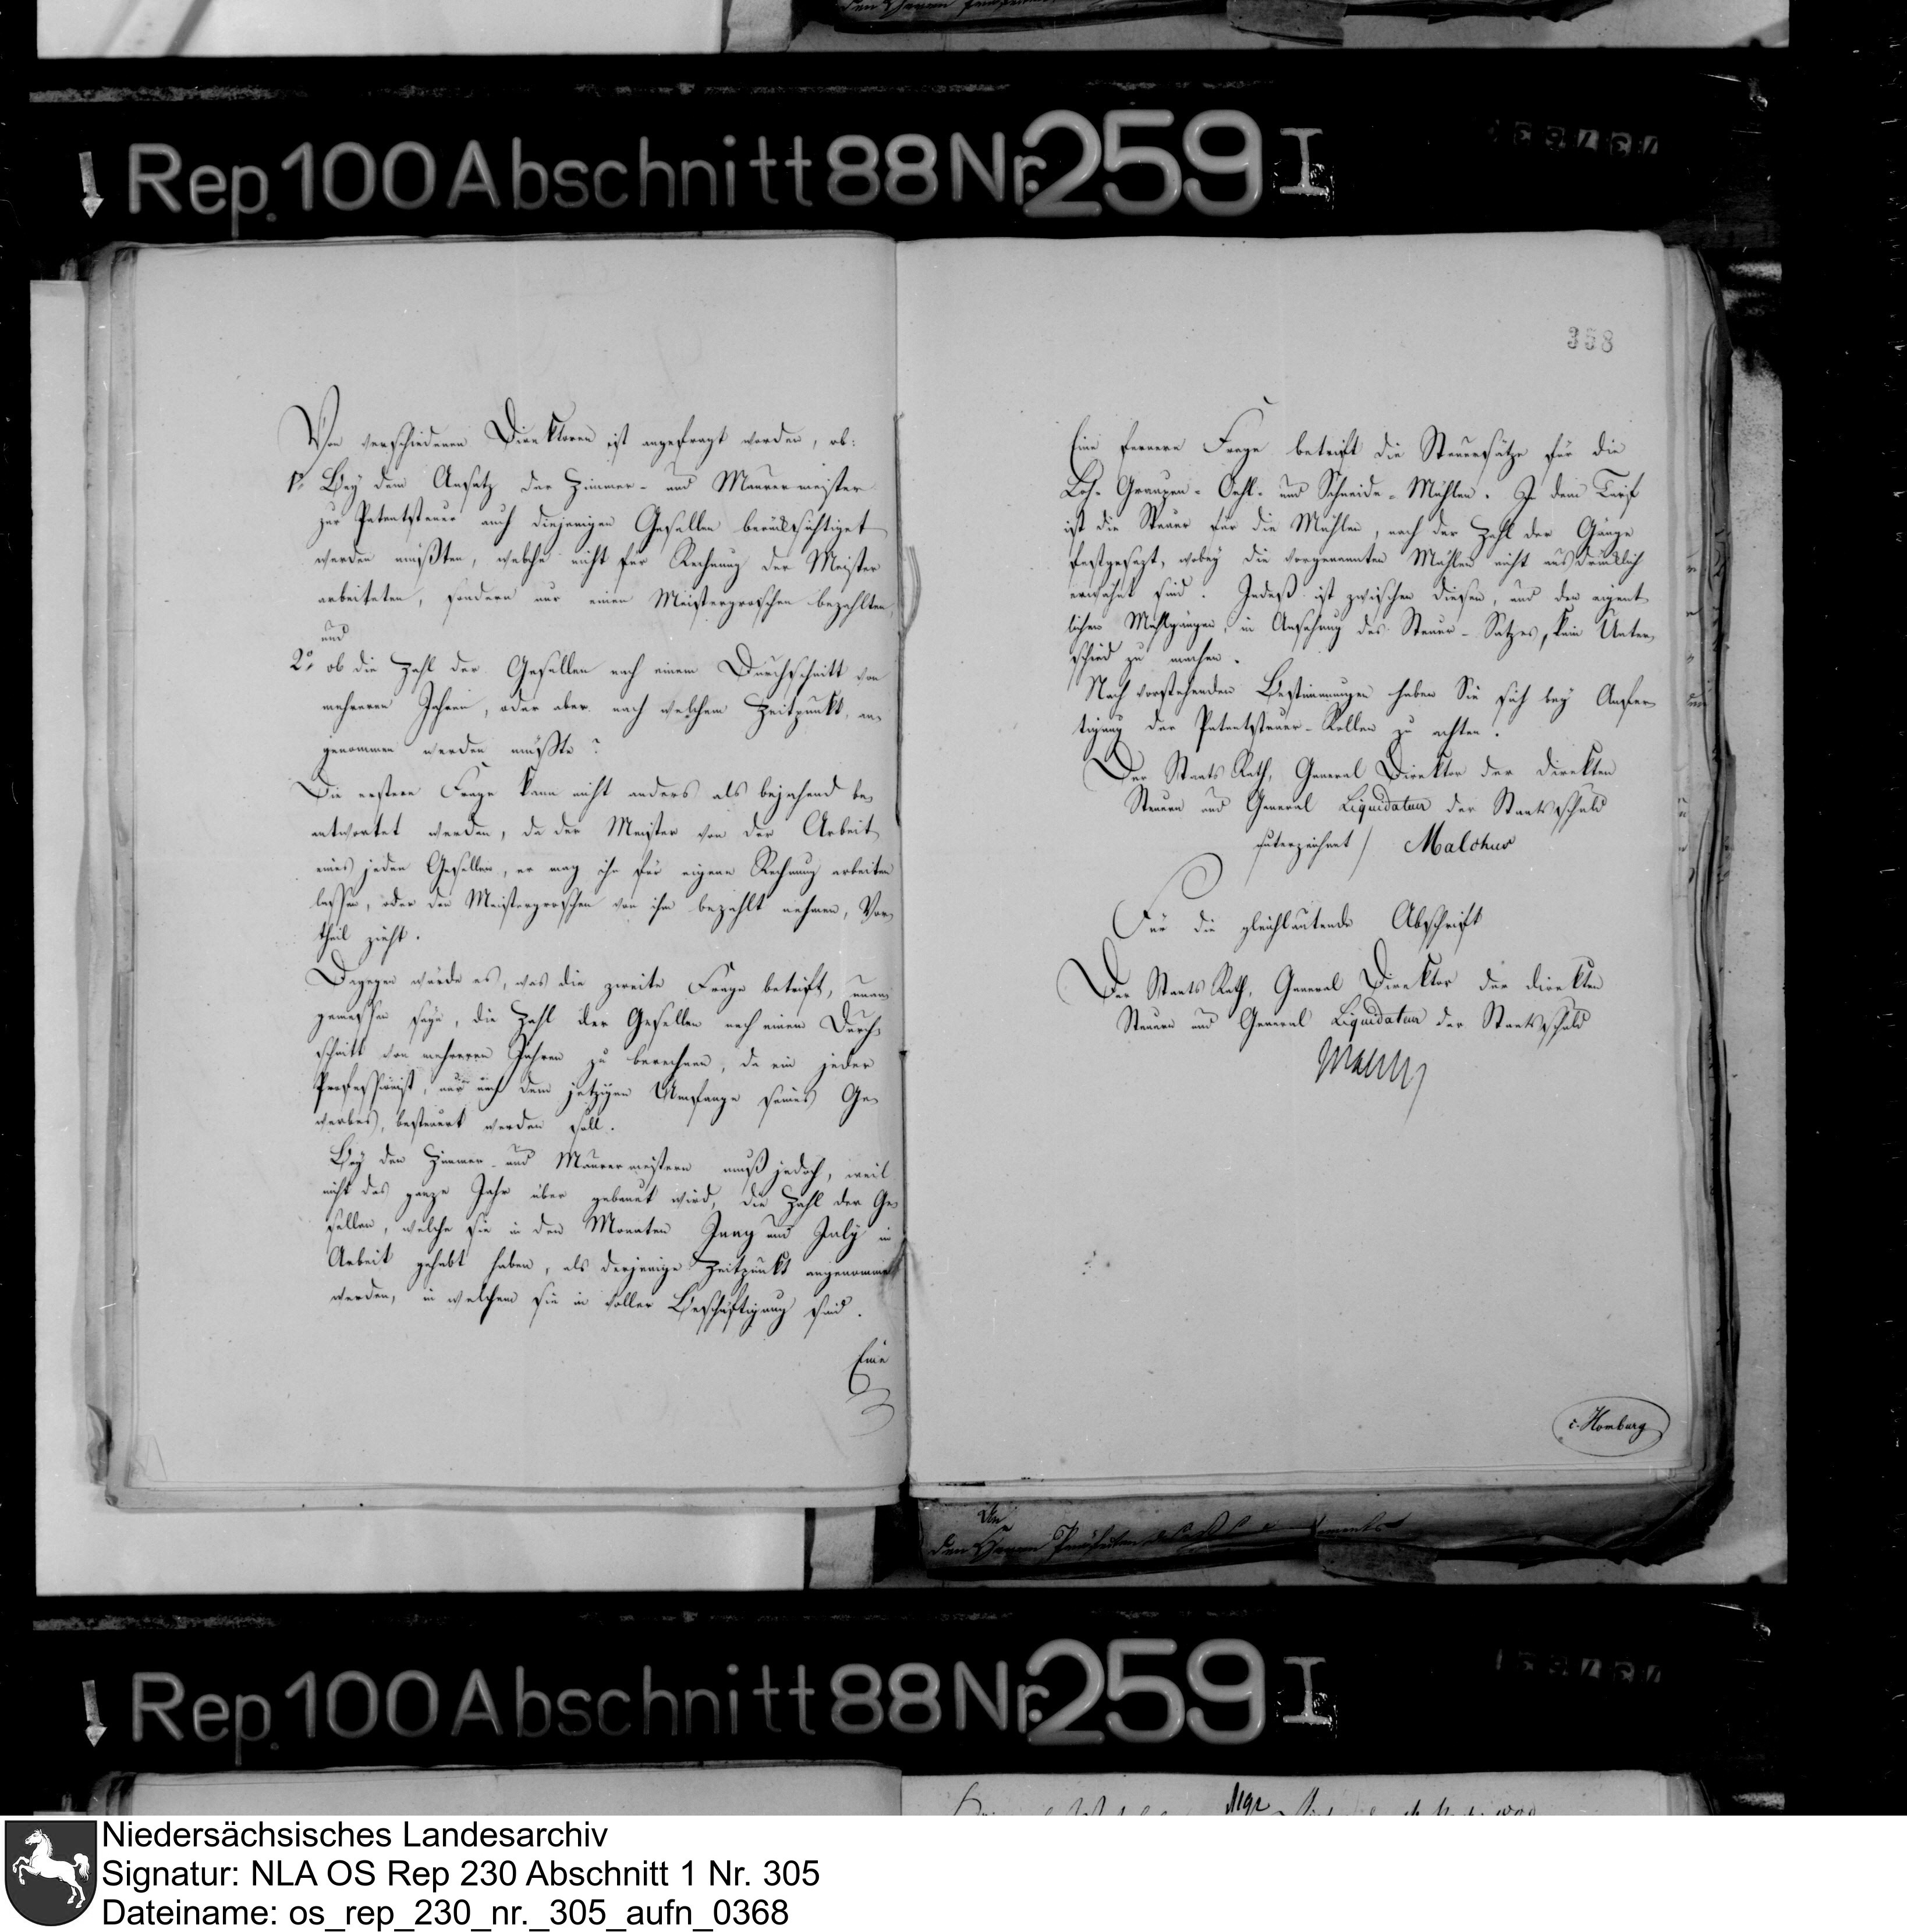 Rep. 100 Abschnitt 88 Nr. 259 I
Von verschiedenen Direktoren ist angefragt worden, ob:
1º Bey dem Ansatz der Zimmer- und Maurermeister
zur Patentsteuer auch diejenigen Gesellen berücksichtiget
werden müßten, welche nicht für Rechnung der Meister
arbeiteten, sondern nur einen Meistergroschen bezahlten,
und
2º ob die Zahl der Gesellen nach einem Durchschnitt von
mehreren Jahren, oder aber nach welchem Zeitpunkt, an-
genommen werden müßte?
Die erstere Frage kann nicht anders als bejahend be-
antwortet werden, da der Meister von der Arbeit
eines jeden Gesellen, er mag ihn für eigene Rechnung arbeiten
lassen, oder den Meistergroschen von ihm bezahlt nehmen, Vor-
theil zieht.
Dagegen würde es, was die zweite Frage betrift, unan-
gemessen seyn, die Zahl der Gesellen nach einem Durch-
schnitt von mehreren Jahren zu berechnen, da ein jeder
Professionist, nur nach dem jetzigen Umfange seines Ge-
werbes, besteuert werden soll.
Bey den Zimmer- und Maurermeistern muß jedoch, weil
nicht das ganze Jahr über gebauet wird, die Zahl der Ge-
sellen, welche sie in den Monaten Juny und July in
Arbeit gehabt haben, als derjenige Zeitpunkt angenommen
werden, in welchem sie in voller Beschäftigung sind.
Eine
358
Eine fernere Frage betrift die Steuersätze für die
Loh- Graupen- Oehl- und Schneide-Mühlen. In dem Tarif
ist die Steuer für die Mühlen, nach der Zahl der Gänge
festgesezt, wobey die vorgenannten Mühlen nicht ausdrücklich
erwähnt sind. Indeß ist zwischen diesen, und den eigent-
lichen Mahlgängen, in Ansehung des Steuer-Satzes, kein Unter-
schied zu machen.
Nach vorstehenden Bestimmungen haben Sie sich bey Anfer-
tigung der Patentsteuer-Rollen zu achten.
Der Staats Rath, General Direktor der direkten
Steuern und General Liquidateur der Staatsschuld
unterzeichnet / Malchus
Für die gleichlautende Abschrift
Der Staats Rath, General Direktor der direkten
Steuern und General Liquidateur der Staatsschuld
Malchus
v. Homburg
An
den Herrn Präfekten des
Rep. 100 Abschnitt 88 Nr. 259 I
Niedersächsisches Landesarchiv
Signatur: NLA OS Rep 230 Abschnitt 1 Nr. 305
Dateiname: os_rep_230_nr._305_aufn_0368